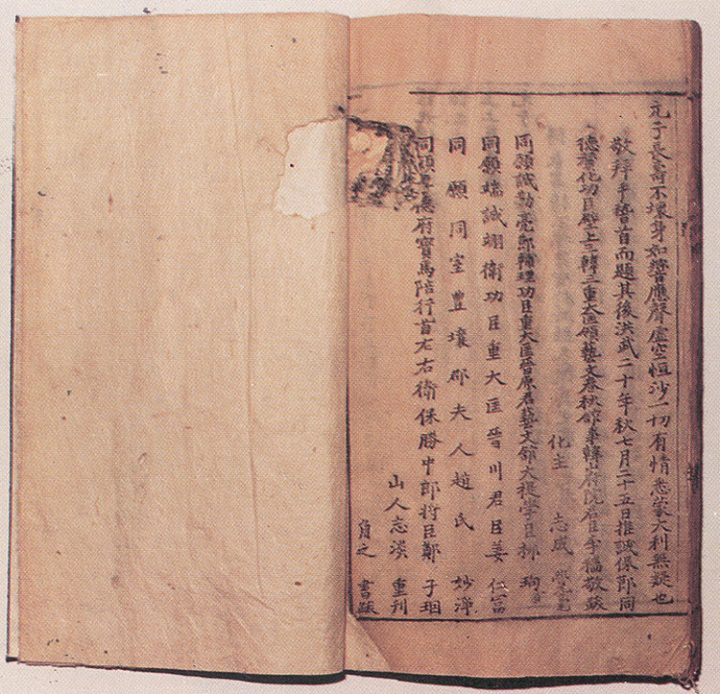 元子長壽不壞身如響應聲虛空恒沙一切有情悉蒙大利無疑也
敬拜手稽首而題其後洪武二十年秋七月二十五日推誠保節同
德贊化功臣壁上三韓三重大匡領藝文春秋館事韓山府院君臣李穡敬跋
化主 志成
同願誠勤亮節補理功臣重大匡晉原君藝文館大提學臣柳珣
同願端誠翊衛功臣重大匡晉川君臣姜仁富
同願同室豊壤郡夫人趙氏 妙淨
同願德府寶馬陪行首左右衛保勝中郎將臣鄭子
山人志淡 重刊
角之 書跋